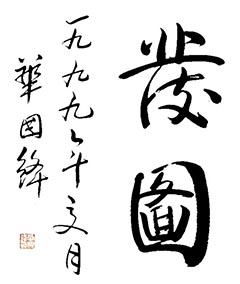 圖
一九九九年五月
華國鋒